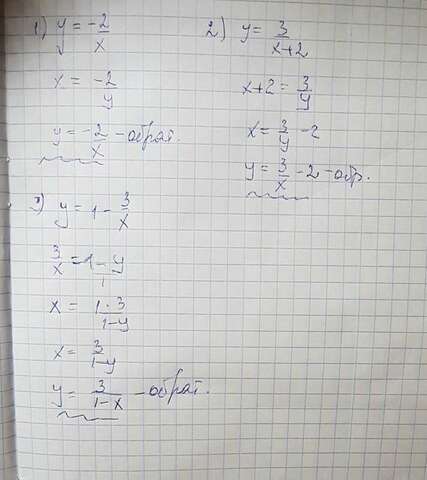 1) y = -2/x
x = -2/y
y = -2/x - обрат.
2) y = 3/x+2
x+2 = 3/y
x = 3/y - 2
y = 3/x - 2 - обр.
3) y = 1 - 3/x
3/x = 1-y/1
x = 1·3/1-y
x = 3/1-y
y = 3/1-x - обрат.